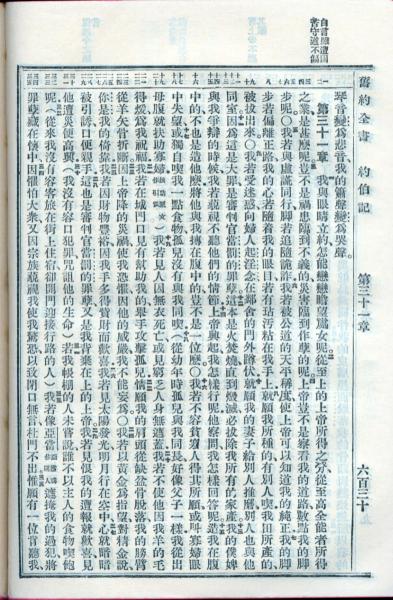 自言雖遭困
苦守道不偏
舊約全書 約伯記 第三十一章 六百三十
琴音變爲悲音我的簫聲變爲哭聲
第三十一章 我與眼睛立約怎能戀戀瞻望處女呢從至上的上帝所得之分從至高全能者所得
之業是甚麼呢豈不是禍患臨到不義的災害臨到作孽的呢上帝豈不是察看我的道路數點我的腳
步呢○我若與虛謊同行腳若追隨詭詐我若被公道的天平稱度使上帝可以知道我的純正我的腳
步若偏離正路我的心若隨着我的眼目若有玷污粘在我手上就願我所種的有別人喫我田所產的
被拔出來○我若受迷惑向婦人起淫念在鄰舍的門外蹲伏就願我的妻子給別人推磨別人也與他
同室因爲這是大罪是審判官當罰的罪孽這本是火焚燒直到毀滅必拔除我所有的家產我的僕婢
與我爭辯的時候我若藐視不聽他們的情節上帝興起我怎樣行呢他察問我怎樣回答呢造我在腹
中的不也是造他麼將他與我摶在腹中的豈不是一位麼○我若不容貧窮人得其所願或叫寡婦眼
中失望或獨自喫我一點食物孤兒沒有與我同喫從幼年時孤兒與我同長好像父子一樣我從出
母腹就扶助寡婦○我若見人因無衣死亡或見窮乏人身無遮蓋我若不使他因我羊的毛
得煖爲我祝福若在城門口見有幫助我的舉手攻擊孤兒情願我的肩頭從缺盆骨脫落我的膀臂
從羊矢骨折斷因上帝降的災禍使我恐懼因他的威嚴我不能妄爲○我若以黃金爲指望對精金說
你是我的倚靠我若因財物豐裕因我手多得貲財而歡喜我若見太陽發光明月行在空中心就暗暗
被引誘口便親手這也是審判官當罰的罪孽又是我背棄在上的上帝我若見恨我的遭報就歡喜見
他遭災便高興(我沒有容口犯罪咒詛他的生命)若我帳棚的人未嘗說誰不以主人的食物喫飽
呢(從來我沒有容客旅在街上住宿卻開門迎接行路的人)我若像亞當遮掩我的過犯將
罪孽藏在懷中因懼怕大眾又因宗族藐視我使我驚恐以致閉口無言杜門不出惟願有一位肯聽我